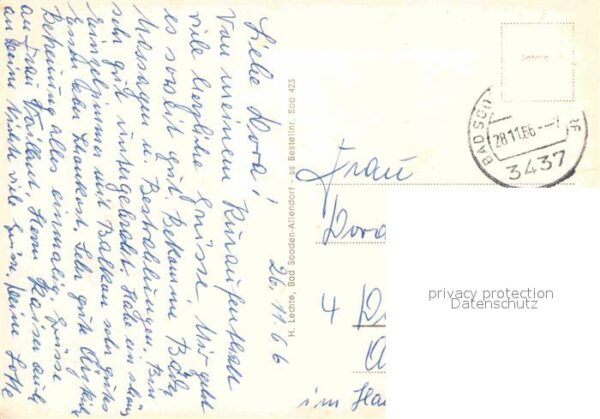 26. 11. 66
Liebe Dora!
Von meinem Kuraufenthalt
viele herzliche Grüsse. Mir geht
es soweit gut. Bekomme Bäder
Massagen u. Bestrahlungen. Bin
sehr gut untergebracht. Habe ein schönes
Einzelzimmer mit Balkon sehr gutes
Essen. Sehr gute
Betreuung alles einmalig. Grüsse
an Frau Herrn Kaiser auch
an Deine viele Grüsse Deine Lotte
H. Lechte, Bad Sooden-Allendorf - ss Bestellnr. Soo 423
BAD SOO
28.11.66
3437
Frau
Dora
4 D
im Ha
privacy protection
Datenschutz